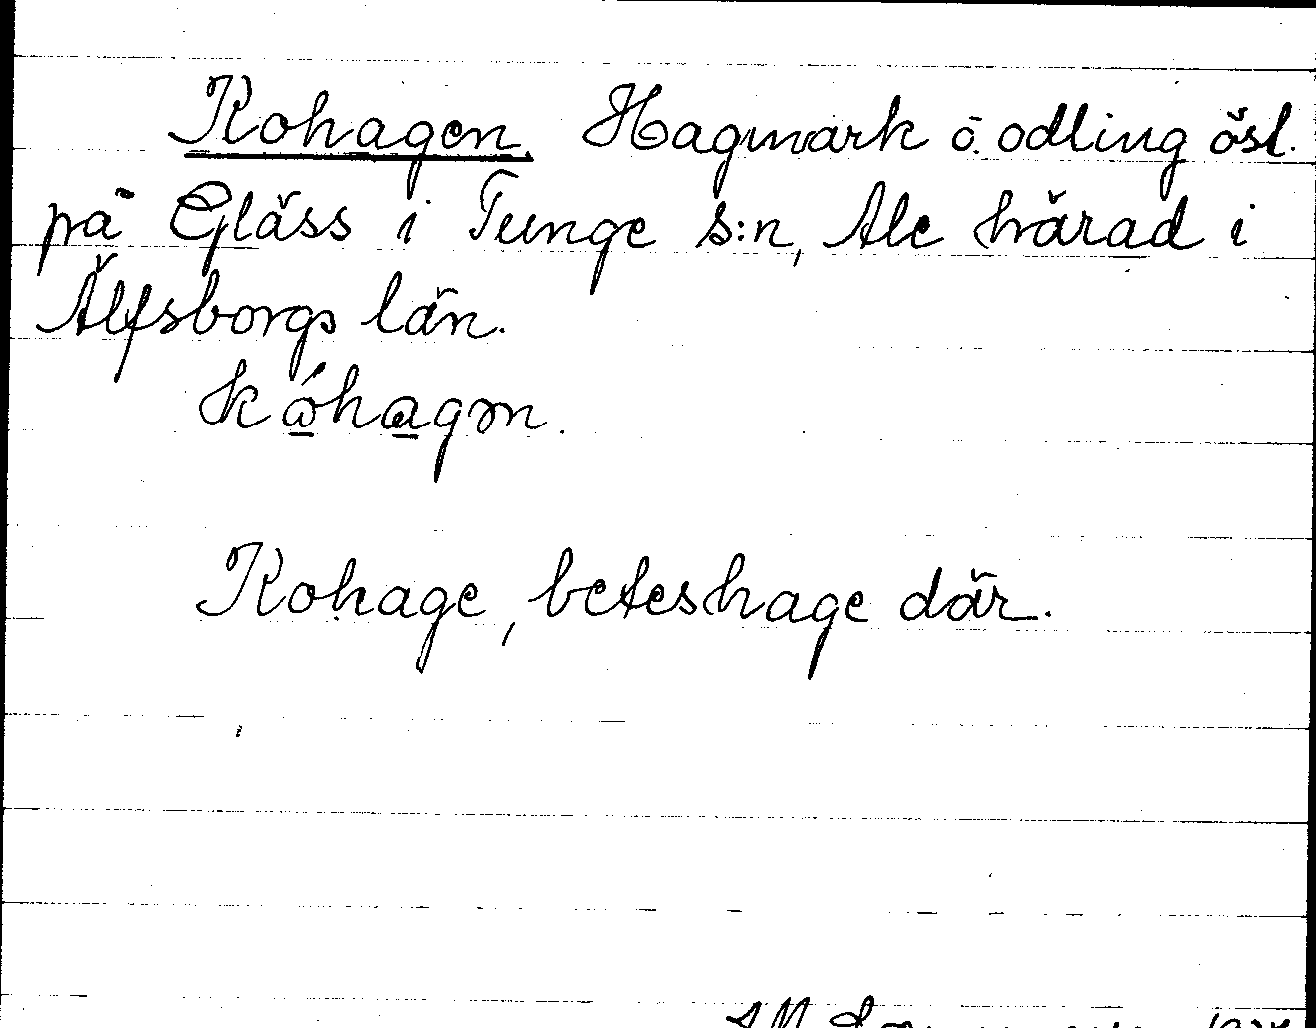 Kohagen. Hagmark o. odling östl.
på Gläss i Tunge s:n, Ale härad i
Älfsborgs län.
kóhagən.
Kohage, beteshage där.